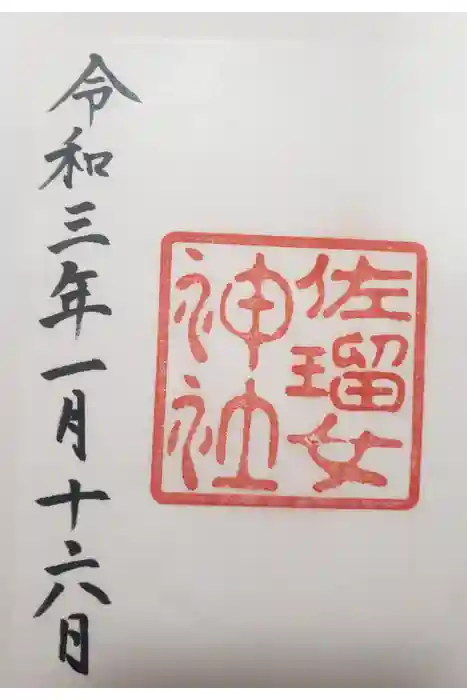 佐瑠女
神社
令和三年一月十六日